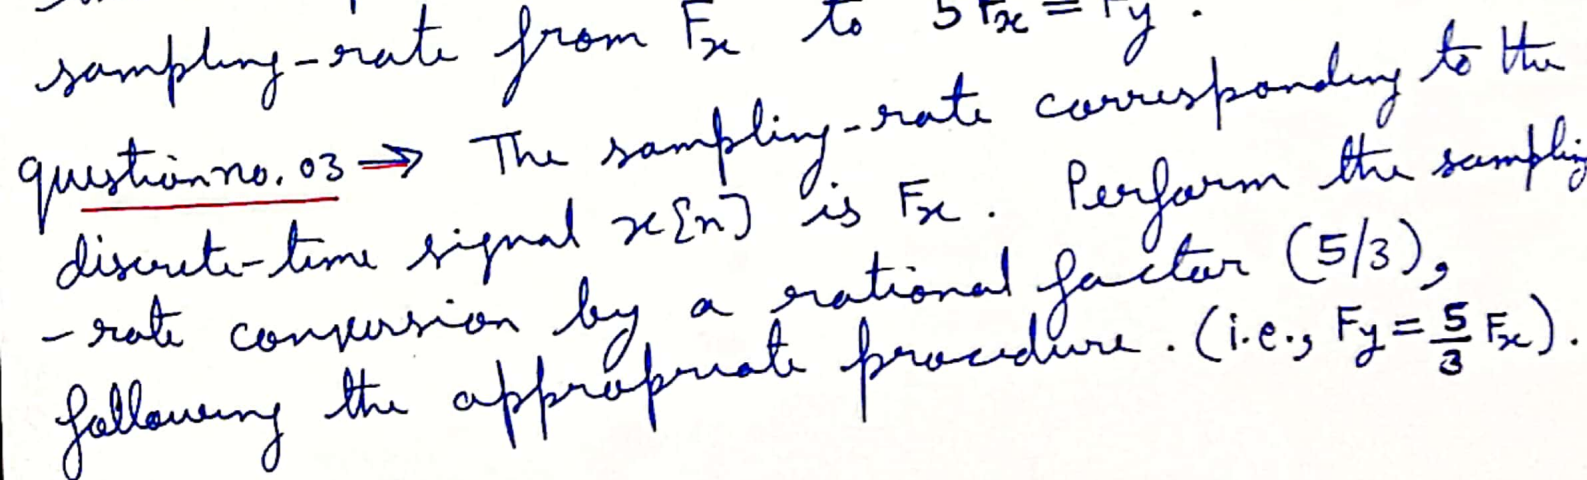 sampling-rate from Fx to 5Fx = Fy.
question no. 03 ⇒ The sampling-rate corresponding to the
discrete-time signal x[n] is Fx. Perform the sampling
-rate conversion by a rational factor (5/3),
following the appropriate procedure. (i.e., Fy = 5/3 Fx).